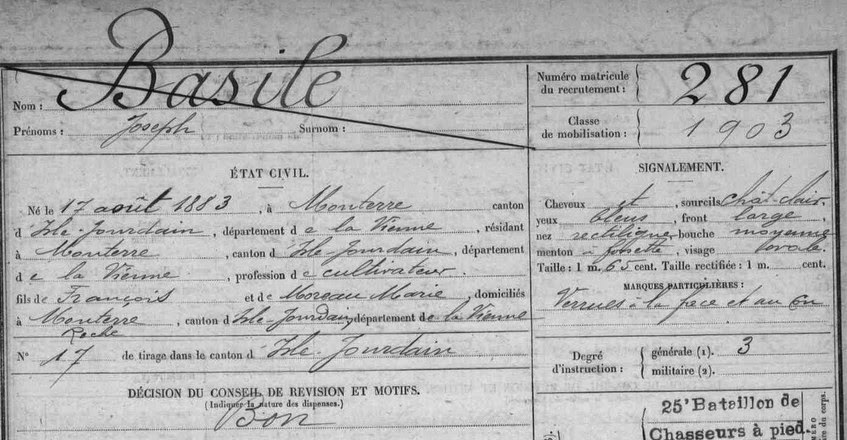 Basile
Nom :
Prénoms : Joseph Surnom :
Numéro matricule du recrutement : 281
Classe de mobilisation : 1903
ÉTAT CIVIL.
Né le 17 août 1883, à Monterre canton
d Isle-Jourdain, département de la Vienne, résidant
à Monterre, canton d Isle Jourdain, département
de la Vienne, profession de cultivateur.
fils de François et de Moreau Marie, domiciliés
à Monterre, canton d Isle-Jourdain, département de la Vienne
Roche
N° 17 de tirage dans le canton d Isle-Jourdain
DÉCISION DU CONSEIL DE REVISION ET MOTIFS.
(Indiquer la nature des dispenses.)
Bon
SIGNALEMENT.
Cheveux et sourcils chât-clair,
yeux bleus, front large,
nez rectiligne bouche moyenne
menton fossette, visage ovale.
Taille : 1 m. 65 cent. Taille rectifiée : 1 m. cent.
MARQUES PARTICULIÈRES :
Verrues à la face et au cou
Degré d'instruction :
générale (1). 3
militaire (2).
25e Bataillon de
Chasseurs à pied.
re du corps.